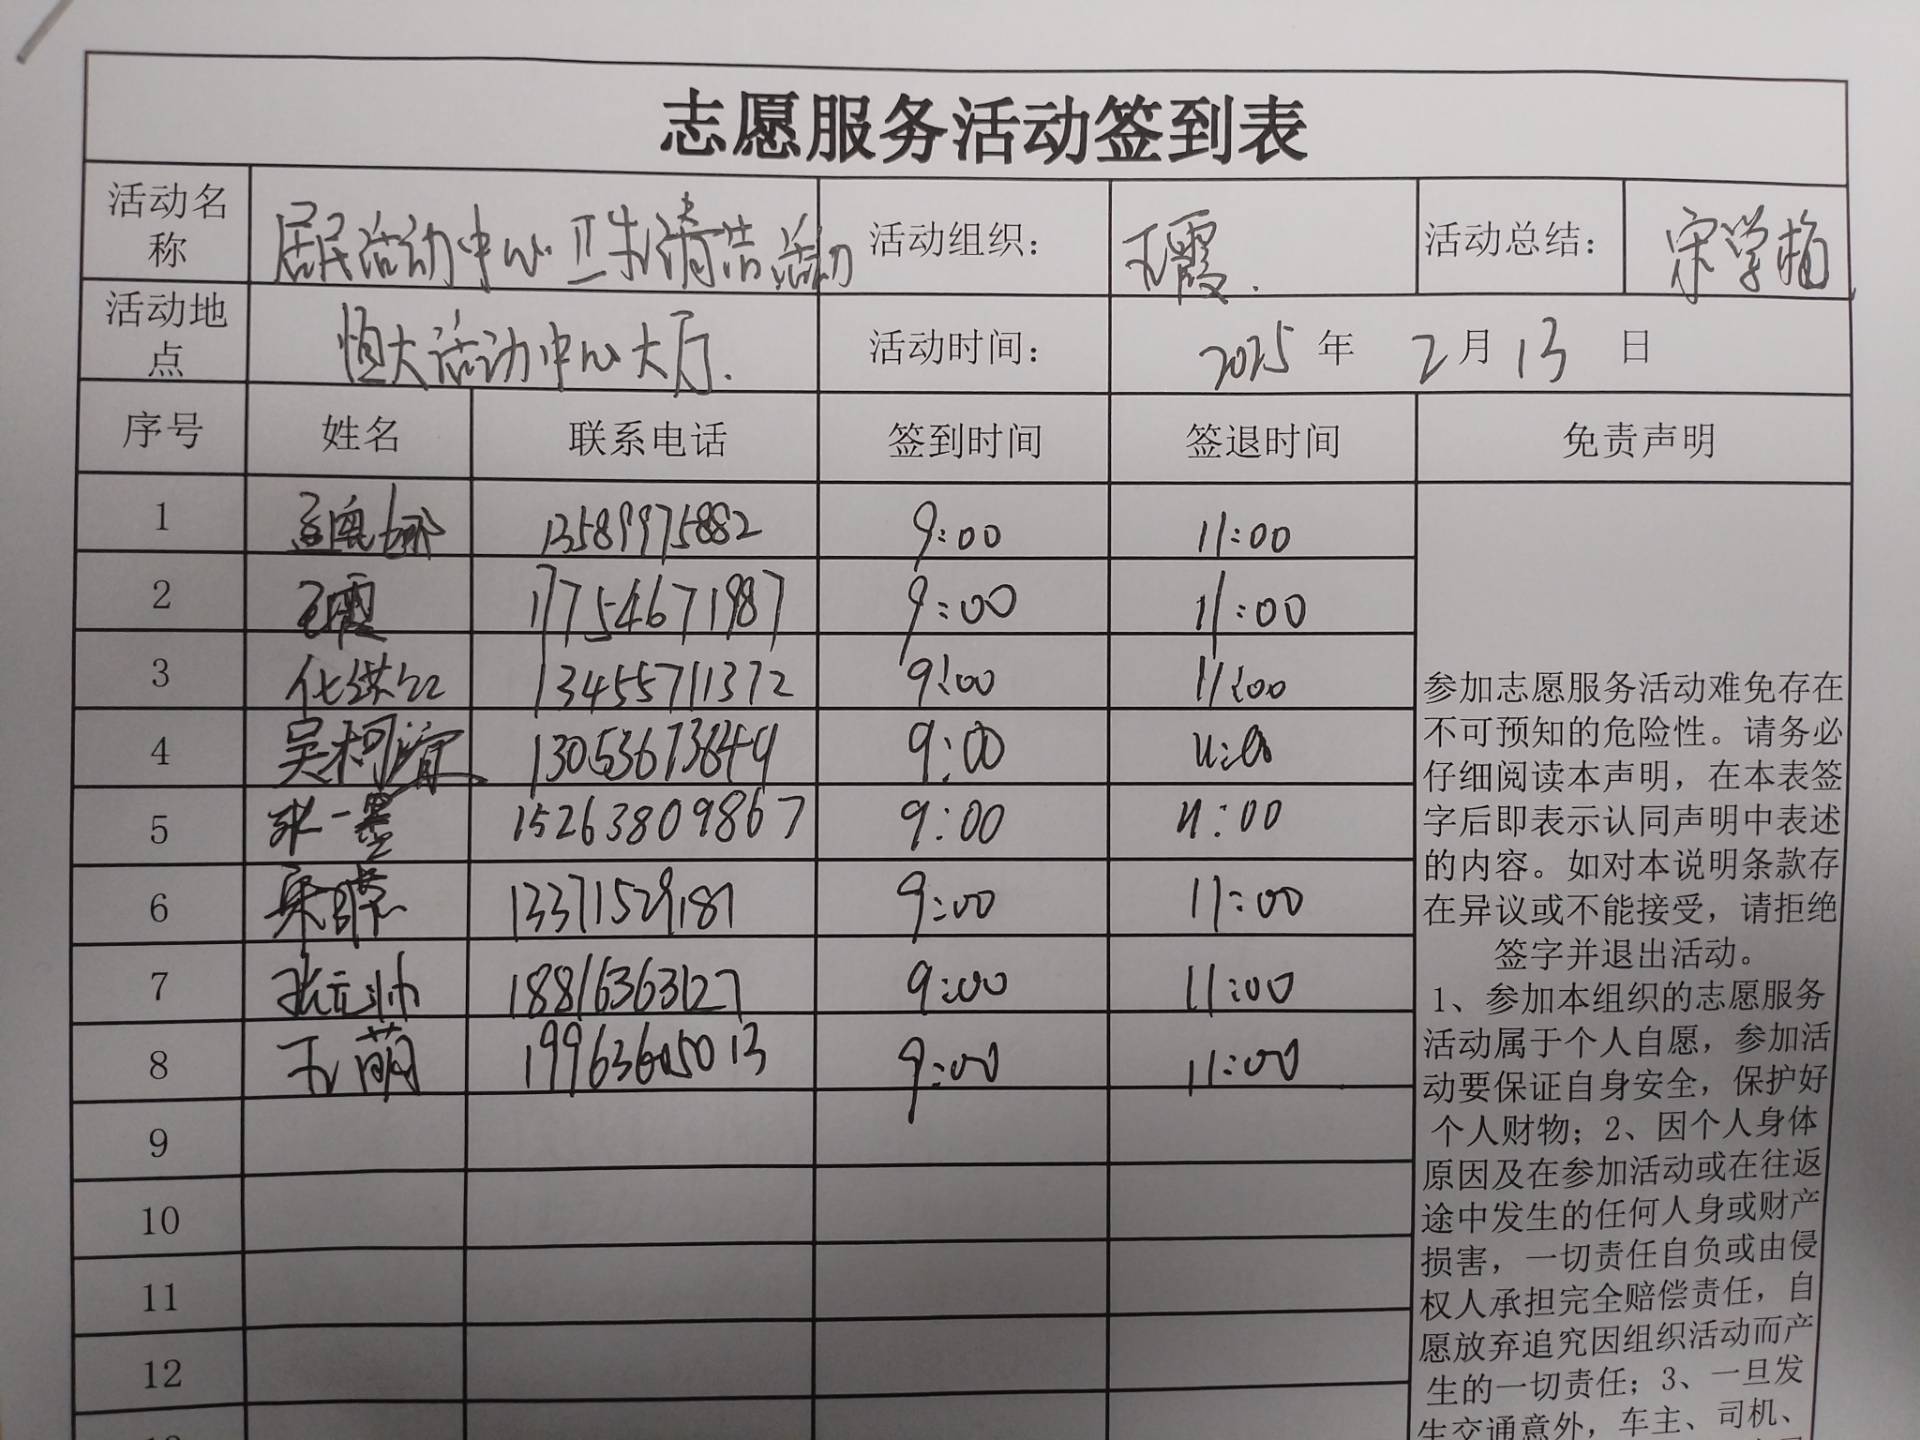 志愿服务活动签到表
活动名称 居民活动中心卫生清洁活动 活动组织： 王霞. 活动总结： 宋学梅
活动地点 恒大活动中心大厅. 活动时间： 2025 年 2 月 13 日
序号 姓名 联系电话 签到时间 签退时间 免责声明
1 13589975882 9:00 11:00
2 王霞 17754671987 9:00 11:00
3 13455711372 9:00 11:00
4 吴柯谊 9:00 11:00
5 张一墨 15263809867 9:00 11:00
6 13371529187 9:00 11:00
7 张元帅 18816363127 9:00 11:00
8 王萌 9:00 11:00
9
10
11
12
参加志愿服务活动难免存在
不可预知的危险性。请务必
仔细阅读本声明，在本表签
字后即表示认同声明中表述
的内容。如对本说明条款存
在异议或不能接受，请拒绝
签字并退出活动。
1、参加本组织的志愿服务
活动属于个人自愿，参加活
动要保证自身安全，保护好
个人财物；2、因个人身体
原因及在参加活动或在往返
途中发生的任何人身或财产
损害，一切责任自负或由侵
权人承担完全赔偿责任，自
愿放弃追究因组织活动而产
生的一切责任；3、一旦发
生交通意外，车主、司机、